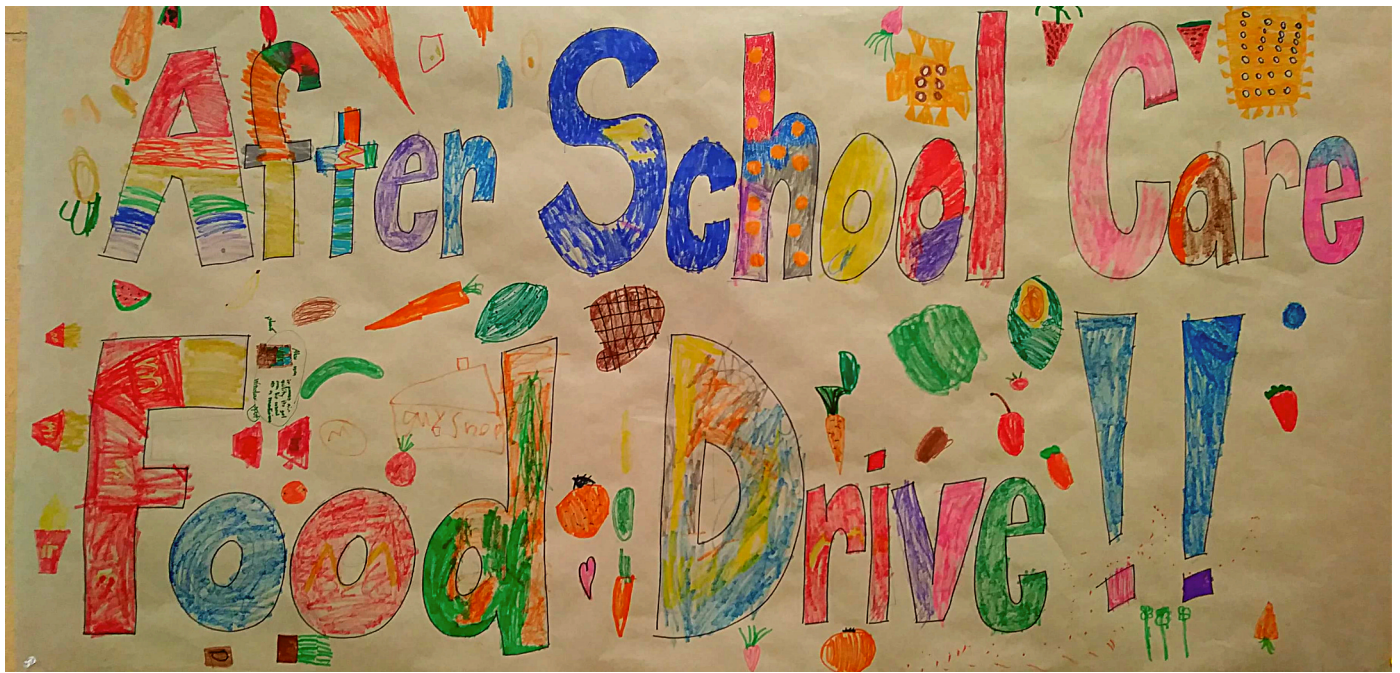 After School Care
Food Drive!!